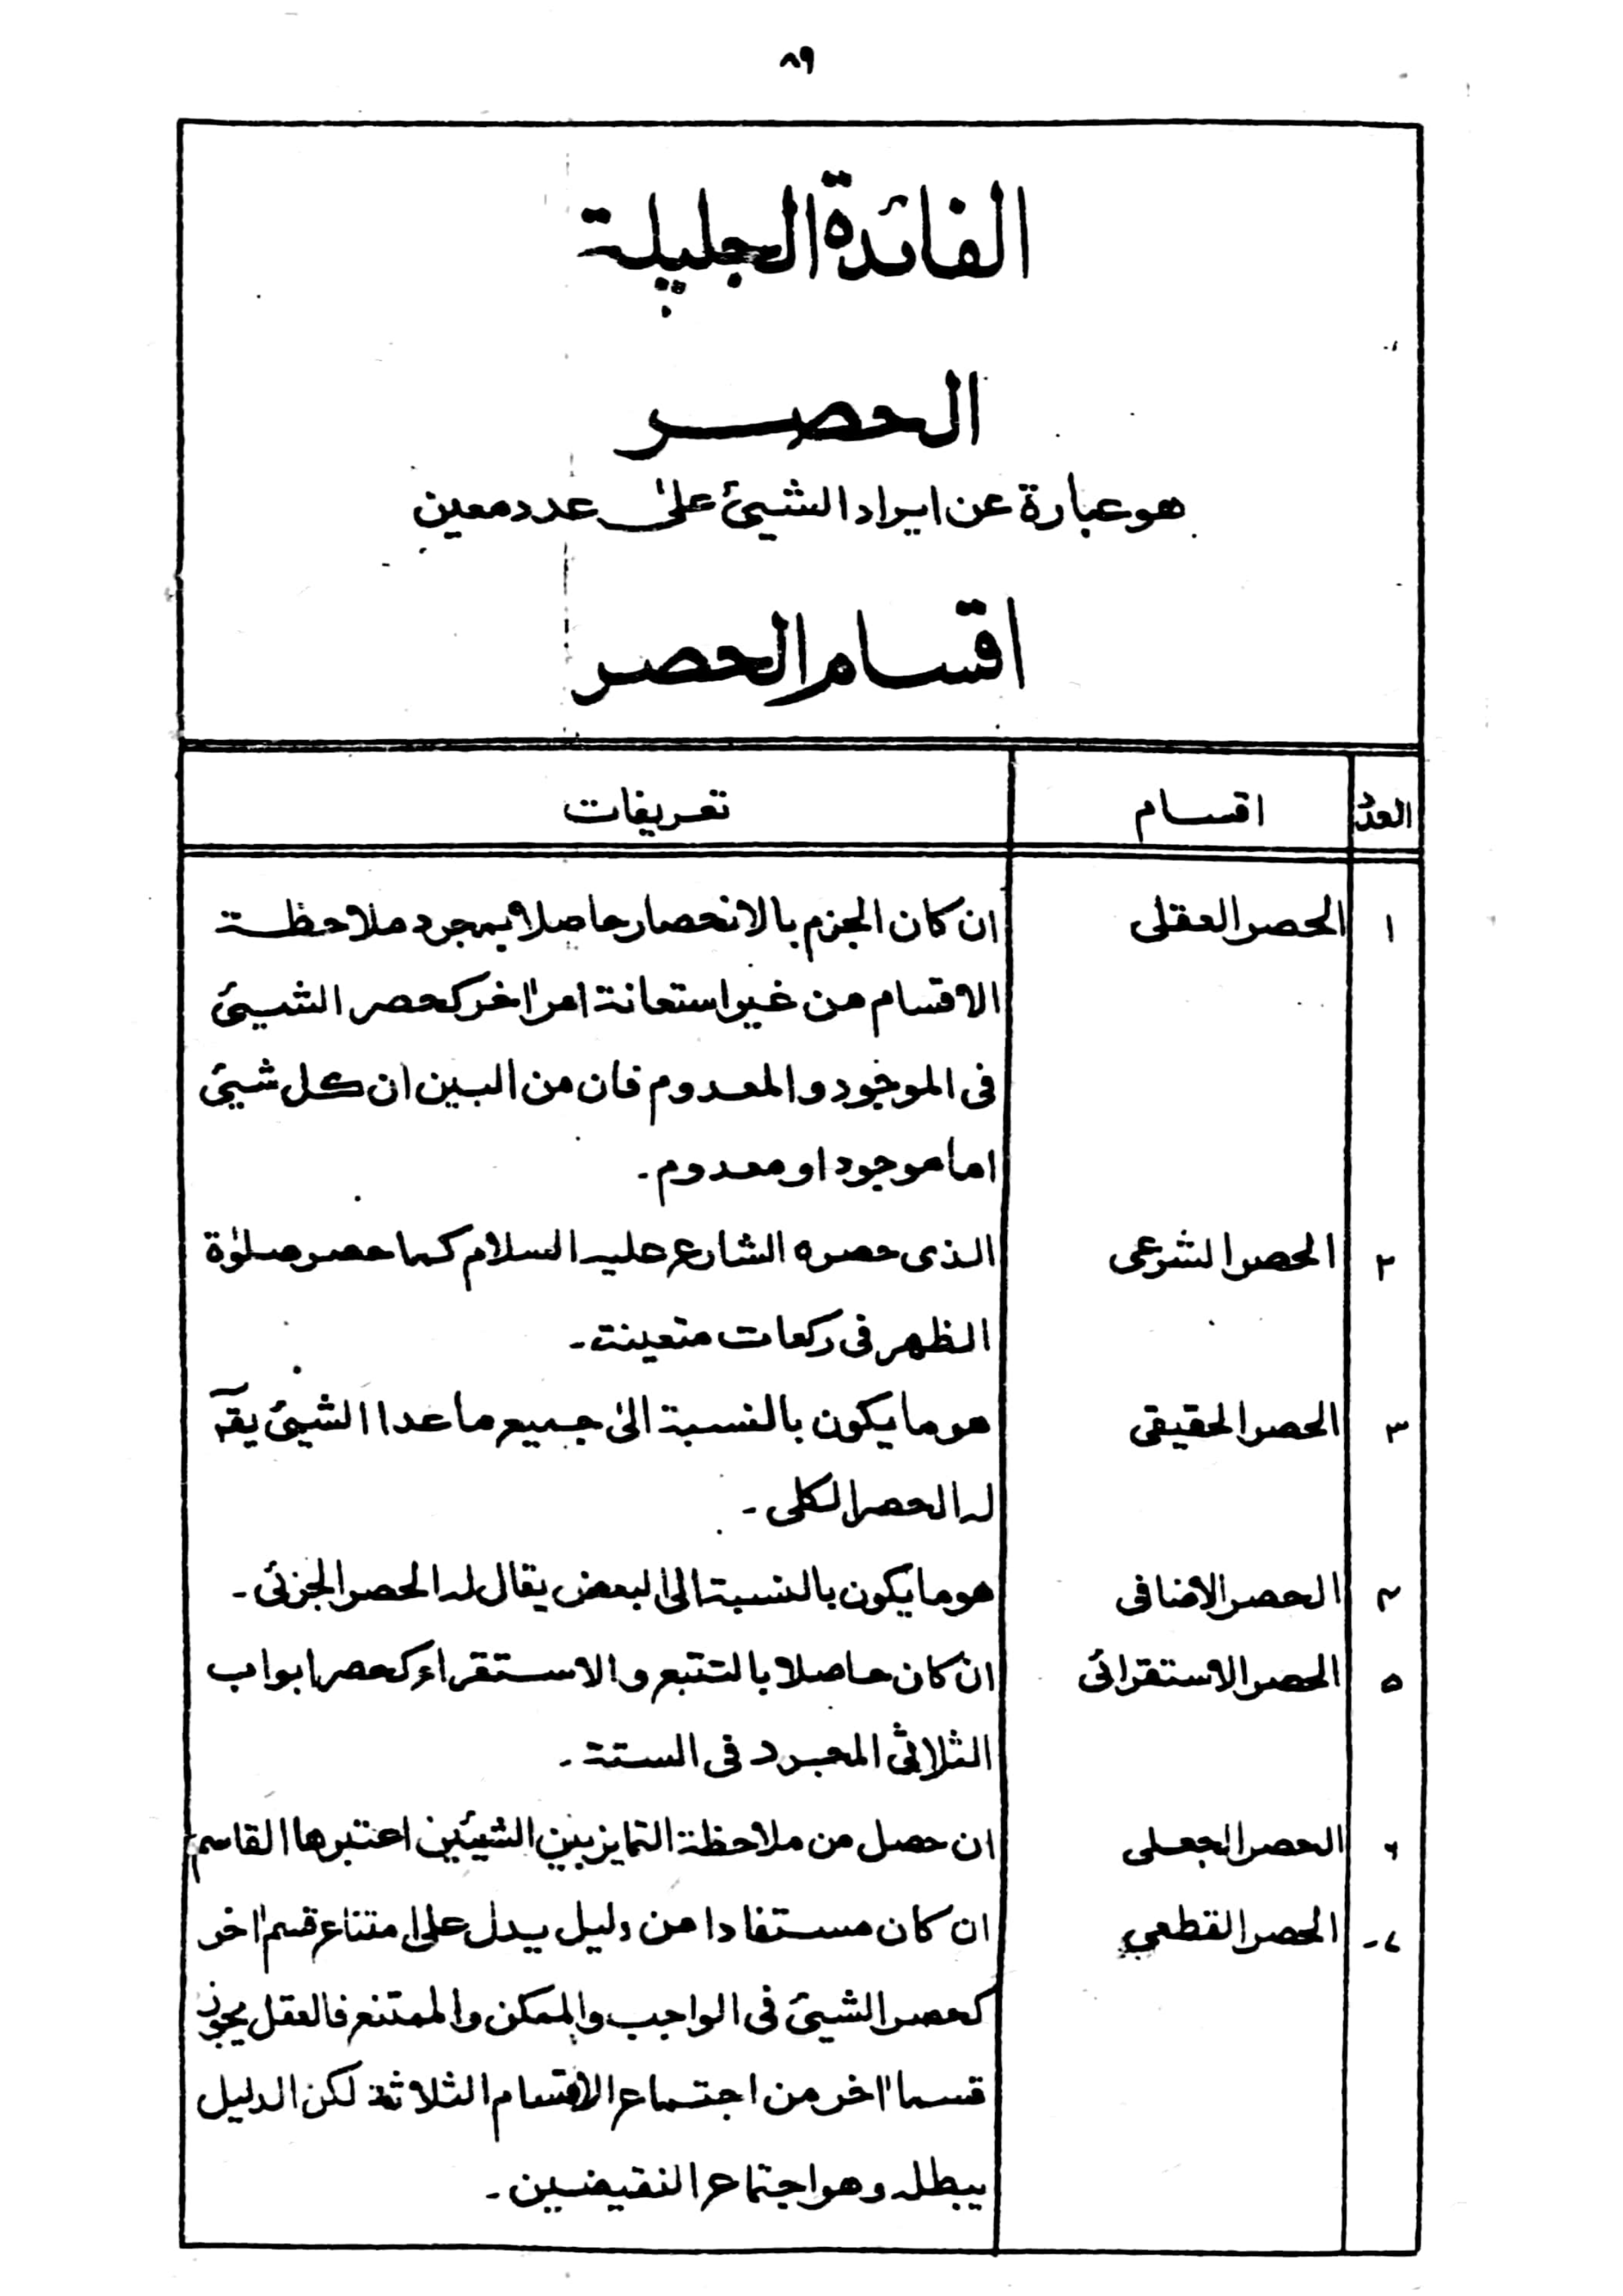 ٨٩
الفائدة الجليلة
الحصر
هو عبارة عن ايراد الشيئ علىٰ عدد معين
اقسام الحصر
العدد اقسام تعريفات
١ الحصر العقلى ان كان الجزم بالانحصار حاصلا بمجرد ملاحظة
الاقسام من غير استعانة امر اٰخر كحصر الشيئ
فى الموجود والمعدوم فان من البين ان كل شيئ
اما موجود او معدوم ۔
٢ الحصر الشرعى الذى حصره الشارع عليه السلام كما حصر صلوٰة
الظهر فى ركعات متعينة ۔
٣ الحصر الحقيقى هو ما يكون بالنسبة الىٰ جميع ما عدا الشيئ يقٓ
له الحصر الكلى ۔
۴ الحصر الاضافى هو ما يكون بالنسبة الى البعض يقال له الحصر الجزئى ۔
٥ الحصر الاستقرائى ان كان حاصلا بالتتبع والاستقراء كحصر ابواب
الثلاثى المجرد فى الستة ۔
۶ الحصر الجعلى ان حصل من ملاحظة التمايز بين الشيئين اعتبرها القاسم
٧۔ الحصر القطعي ان كان مستفادا من دليل يدل على امتناع قسم اٰخر
كحصر الشيئ فى الواجب والممكن والممتنع فالعقل يجوز
قسما اٰخر من اجتماع الاقسام الثلاثة لكن الدليل
يبطله وهو اجتماع النقيضين ۔